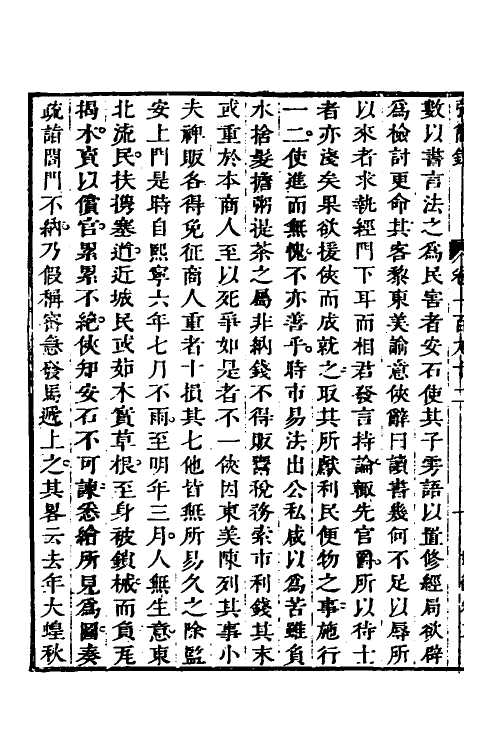 數以書言法之爲民害者安石使其子雱語以置修經局欲辟
爲檢討更命其客黎東美諭意俠辭曰讀書幾何不足以辱所
以來者求執經門下耳而相君發言持論輒先官爵所以待士
者亦淺矣果欲援俠而成就之取其所獻利民便物之事施行
一二使進而無愧不亦善乎時市易法出公私咸以爲苦雖負
水捨髮擔粥提茶之屬非納錢不得販鬻稅務索市利錢其末
或重於本商人至以死爭如是者不一俠因東美陳列其事小
夫裨販各得免征商人重者十損其七他皆無所易久之除監
安上門是時自熙寧六年七月不雨至明年三月人無生意東
北流民扶攜塞道近城民或茹木實草根至身被鎖械而負瓦
揭木賣以償官累累不絶俠知安石不可諫悉繪所見爲圖奏
疏詣閤門不納乃假稱密急發馬遞上之其畧云去年大蝗秋